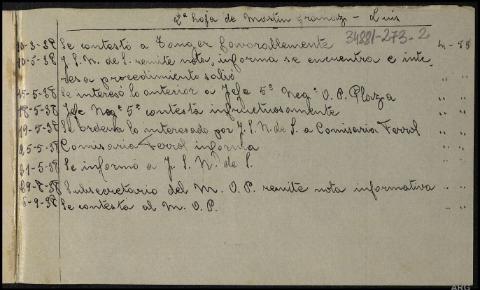 2ª hoja de Martín Gramaz - Luis
34881-273-2
10-3-38 Se contestó a Tanger favorablemente 4-58
10-5-38 J. S. N. de S. remite nota, informa se encuentra e inte-
desa procedimiento salió
15-5-38 Se interesó lo anterior a Jefe 5º Negº O. P. Plaza
18-5-38 Jefe Negº 5º contesta infructuosamente
19-5-38 Se ordena lo interesado por J. S. N. de S. a Comisaria Ferrol
25-5-38 Comisaria Ferrol informa
31-5-38 Se informó a J. S. N. de S.
29-8-38 Subsecretario del M. O. P. remite nota informativa
6-9-38 Se contesta al M. O. P.
ARG